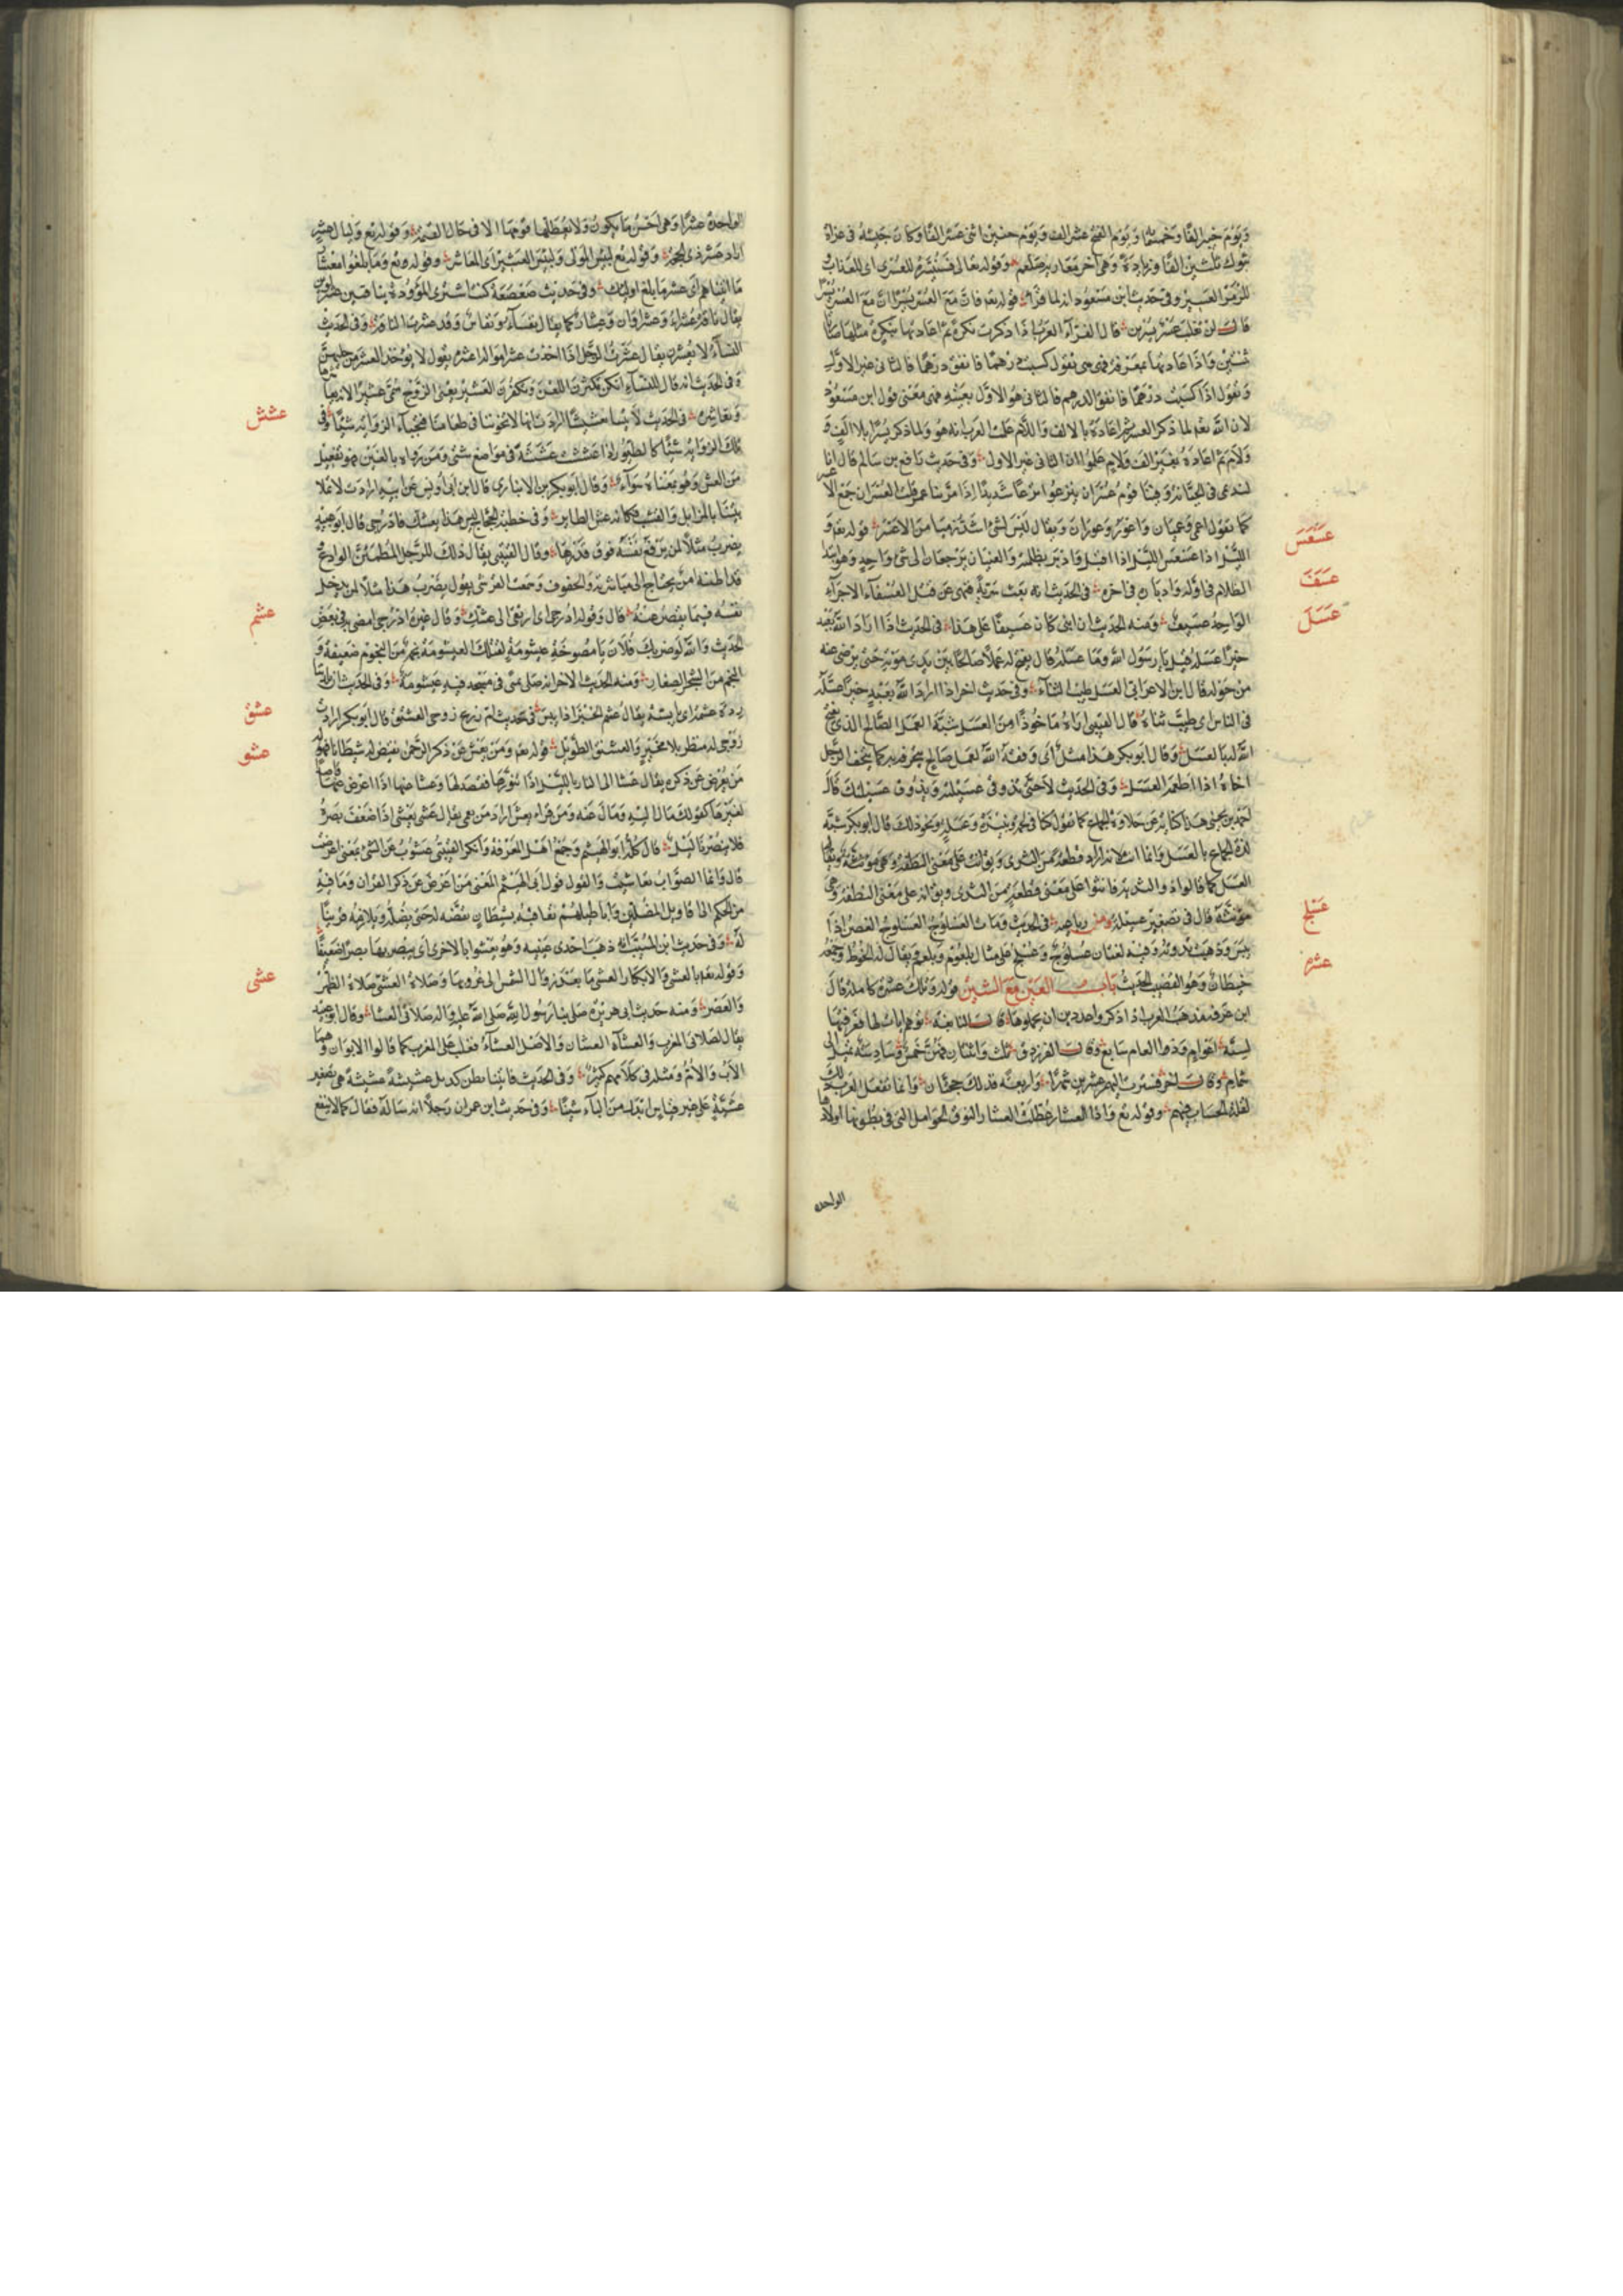 ويوم خيبر الفا وخمسمائة ويوم الفتح عشرة الف ويوم حنين اثنى عشر الفا وكان جيشه فى غزاة
تبوك ثلثين الفا وزيادة وهى آخر مغازيه صلعم وقوله تعالى فسنيسره للعسرى اى للعذاب
العسير وفى حديث ابن مسعود انه لما قرأ قوله تع فان مع العسر يسرا ان مع العسر يسرا
قال لن يغلب عسر يسرين قال الفراء العرب اذا ذكرت نكرة ثم اعادتها بنكرة مثلها صارتا
ثنتين واذا اعادتها بمعرفة فهى هى تقول كسبت درهما فانفق درهما فالثانى غير الاول
وتقول اذا كسبت درهما فانفق الدرهم فالثانى هو الاول بعينه فهى معنى قول ابن مسعود
لان الله تع لما ذكر العسر ثم اعاده بالالف واللام علمت العرب انه هو ولما ذكر يسرا بلا الف و
ولام ثم اعاده بغير الف ولام علموا ان الثانى غير الاول وفى حديث رافع بن سالم قال انا
لنرتمى فى الجبانة وفينا قوم عسران ينزعون نزعا شديدا اذ مر بنا عمر قلت العسران جمع الا
كما تقول اعمى وعميان واعور وعوران ويقال ليس شئ اشد رميا من الاعسر قوله تع و
الليل اذا عسعس الليل اذا اقبل واذا ادبر بظلمه والمعنيان يرجعان الى شئ واحد وهو ابتدا
الظلام فى اوله وادباره فى اخره فى الحديث انه بعث سرية فنهى عن قتل العسفاء الاجراء
الواحد عسيف ومنه الحديث ان ابنى كان عسيفا على هذا فى الحديث اذا اراد الله بعبد
خيرا عسله قيل يا رسول الله وما عسله قال يفتح له عملا صالحا بين يدى موته حتى يرضى عنه
من حوله قال ابن الاعرابى العسل طيب الثناء وفى حديث اخر اذا اراد الله بعبد خيرا عسله
فى الناس اى طيب ثناه قال القتيبى اراه ماخوذا من العسل شبه العمل الصالح الذى يفتح
الله له بالعسل وقال ابو بكر هذا مثل اى وفقه الله لعمل صالح يتحفه به كما يتحف الرجل
اخاه اذا اطعمه العسل وفى الحديث لا حتى تذوقى عسيلته ويذوق عسيلتك قال
احمد بن يحيى هذا كناية عن حلاوة الجماع كما تقول كنا فى لحمة ونبيذة وعسلة ونحو ذلك قال ابو بكر شبه
لذة الجماع بالعسل وانما انث لانه اراد قطعة من العسل
مؤنثة قال فى تصغير عسيلة ومن رباعيه فى الحديث ومات العسلوج العسلوج الغصن اذا
يبس وذهبت وفيه لغتان عسلوج وعسلج على مثال بلعوم وبلعم ويقال له الخوط وجمعه
خيطان وهو القضيب الحديث باب العين مع الشين قوله وتلك عشرة كاملة قال
ابن عرفة مذهب العرب اذا ذكروا عددين ان يجملوهما قال النابغة توهمت آيات لها فعرفتها
لستة اعوام وذا العام سابع وقال الفرزدق ثلث واثنتان فهن خمس وسادسة تميل الى
شمام وقال اخر فسرت اليهم عشرين شهرا واربعة فذلك حجتان وانما تفعل العرب ذلك
لقلة الحساب فيهم وقوله تع واذا العشار عطلت العشار النوق الحوامل التى فى بطونها اولادها
الواحدة
عسعس
عسف
عسل
عسلج
عشر
الواحدة عشراء وهى احسن ما يكون ولا يعطلها قومها الا فى حال القيمة وقوله تع وليال عشر
اراد عشر ذى الحجة وقوله تع لبئس المولى ولبئس العشير اى المعاشر وقوله تع وما بلغوا معشار
ما آتيناهم اى عشر ما بلغ اولئك وفى حديث صعصعة كنت اشترى الموؤدة بناقتين عشراوين
يقال ناقة عشراء وعشراوان وعشار كما يقال نفساء ونفاس وقد عشرت الناقة وفى الحديث
النساء لا يعشرن يقال عشرت الرجل اذا اخذت عشر امواله اعشره يقول لا يؤخذ العشر من حليهن
وفى الحديث انه قال للنساء انكن تكثرن اللعن وتكفرن العشير يعنى الزوج سمى عشيرا لانه يعاشرها
وتعاشره فى الحديث لا تملأ بيتنا تعشيشا ارادت انها لا تخوننا فى طعامنا فتخبأ فى هذه الزاوية شيئا وفى
تلك الزاوية شيئا كالطيور اذا عششت عششه فى مواضع شتى ومن رواه بالغين فهو تفعيل
من الغش وهو بمعناه سواء وقال ابو بكر بن الانبارى قال ابن ابى اويس عن ابيه ارادت لا تملأ
بيتنا بالمزابل والقشب كانه عش الطاير وفى خطبة الحجاج ليس هذا بعشك فادرجى قال ابو عبيد
يضرب مثلا لمن يرفع نفسه فوق قدرها وقال القتيبى يقال ذلك للرجل المطمئن الوادع
قد اظله امر يحتاج الى مباشرته والخفوف وسمعت القرشى يقول يضرب هذا مثلا لمن يدخل
نفسه فيما يقصر عنه قال وقوله ادرجى اى ارجعى الى عشك وقال غيره ادرجى امضى فى بعض
الحديث والله لو ضربك فلان بامصوخة عيشومة لقتلك العيشومة نجم من النجوم ضعيفة و
النجم من الشجر الصغار ومنه الحديث الاخر انه صلى منى فى مسجد فيه عيشومة وفى الحديث ان
بردة عشمة اى يابسة يقال عشم الخبز اذا يبس فى حديث ام زرع زوجى العشنق قال ابو بكر ارادت
زوجى له منظر بلا مخبر والعشنق الطويل قوله تع ومن يعش عن ذكر الرحمن نقيض له شيطانا فهو له
من يعرض عن ذكره يقال عشا الى النار بالليل اذا تنورها فقصد لها وعشا عنها اذا اعرض عنها قاصدا
لغيرها كقولك مال اليه ومال عنه ومن قراء يعش اراد من يعمى يقال عشى يعشى اذا ضعف بصره
فلا يبصر ليلا قال كله ابو الهيثم وجمع اهل المعرفة وانكر القتيبى عشوت عن الشئ بمعنى اعرضت
قال وانما الصواب تعاشيت والقول قول ابى الهيثم المعنى من اعرض عن ذكر القران وما فيه
من الحكم الى اقاويل المضلين واباطيلهم نعاقبه بشيطان نقيضه له حتى يضله ويلازمه قرينا
له وفى حديث ابن المسيب انه ذهبت احدى عينيه وهو يعشو بالاخرى اى يبصر بها بصرا ضعيفا
وقوله تع بالعشى والابكار العشى ما بعد زوال الشمس الى غروبها وصلاة العشى صلاة الظهر
والعصر ومنه حديث ابى هريرة صلى بنا رسول الله صلى الله عليه واله صلاتى العشا وقال ابو عبيد
يقال لصلاتى المغرب والعشاء العشاان والاصل العشاء فغلب على المغرب كما قالوا الابوان وهما
الاب والام ومثله فى كلامهم كثير وفى الحديث فاتينا بطن كديد عشيشية هى تصغير
عشية على غير قياس ابدل من الياء شينا وفى حديث ابن عمران رجلا اتاه سأله فقال كما لا ينفع
عشش
عشم
عشق
عشو
عشى